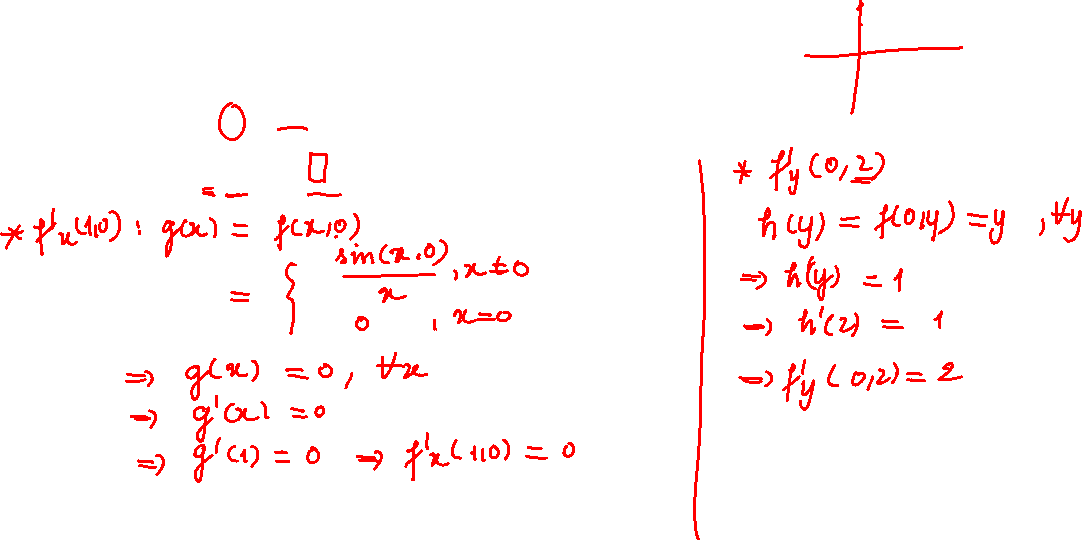 * f'x(1,0) : g(x) = f(x,0)
= { sin(x.0)/x , x ≠ 0
0 , x=0
⇒ g(x) = 0, ∀x
→ g'(x) = 0
⇒ g'(1) = 0 → f'x(1,0) = 0
* f'y(0,2)
h(y) = f(0,y) = y , ∀y
⇒ h'(y) = 1
→ h'(2) = 1
⇒ f'y(0,2) = 2